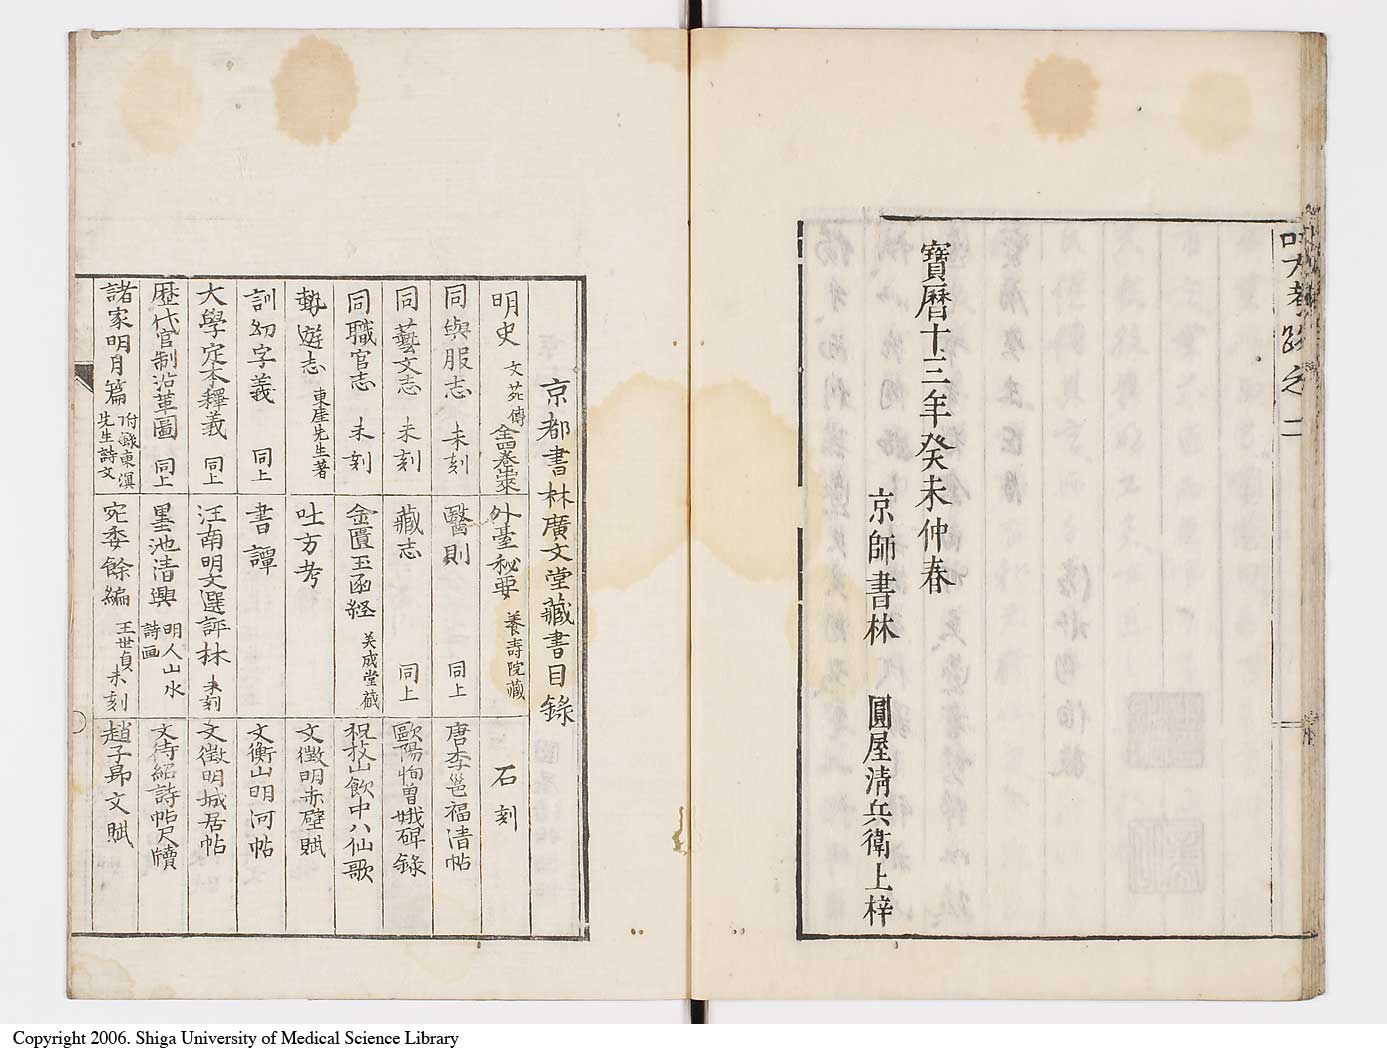 寶曆十三年癸未仲春
京師書林 圓屋淸兵衛上梓
京都書林廣文堂藏書目錄
明史 文苑傳
同輿服志 未刻
同藝文志 未刻
同職官志 未刻
埶遊志 東厓先生著
訓幼字義 同上
大學定本釋義 同上
歴代官制沿革圖 同上
諸家明月篇 附錄東溟先生詩文
外臺秘要 養壽院藏
醫則 同上
藏志 同上
金匱玉函経 美成堂藏
吐方考
書譚
汪南明文選評林 未刻
墨池清興 明人山水詩画
宛委餘編 王世貞 未刻
石刻
唐李邕福清帖
歐陽恂曹娥碑錄
祝枝山飲中八仙歌
文徵明赤壁賦
文衡山明河帖
文徵明城居帖
文待紹詩帖尺牘
趙子昴文賦
Copyright 2006. Shiga University of Medical Science Library